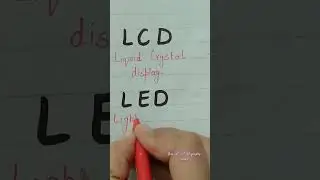 LCD
Liquid Crystal
display
LED
Light